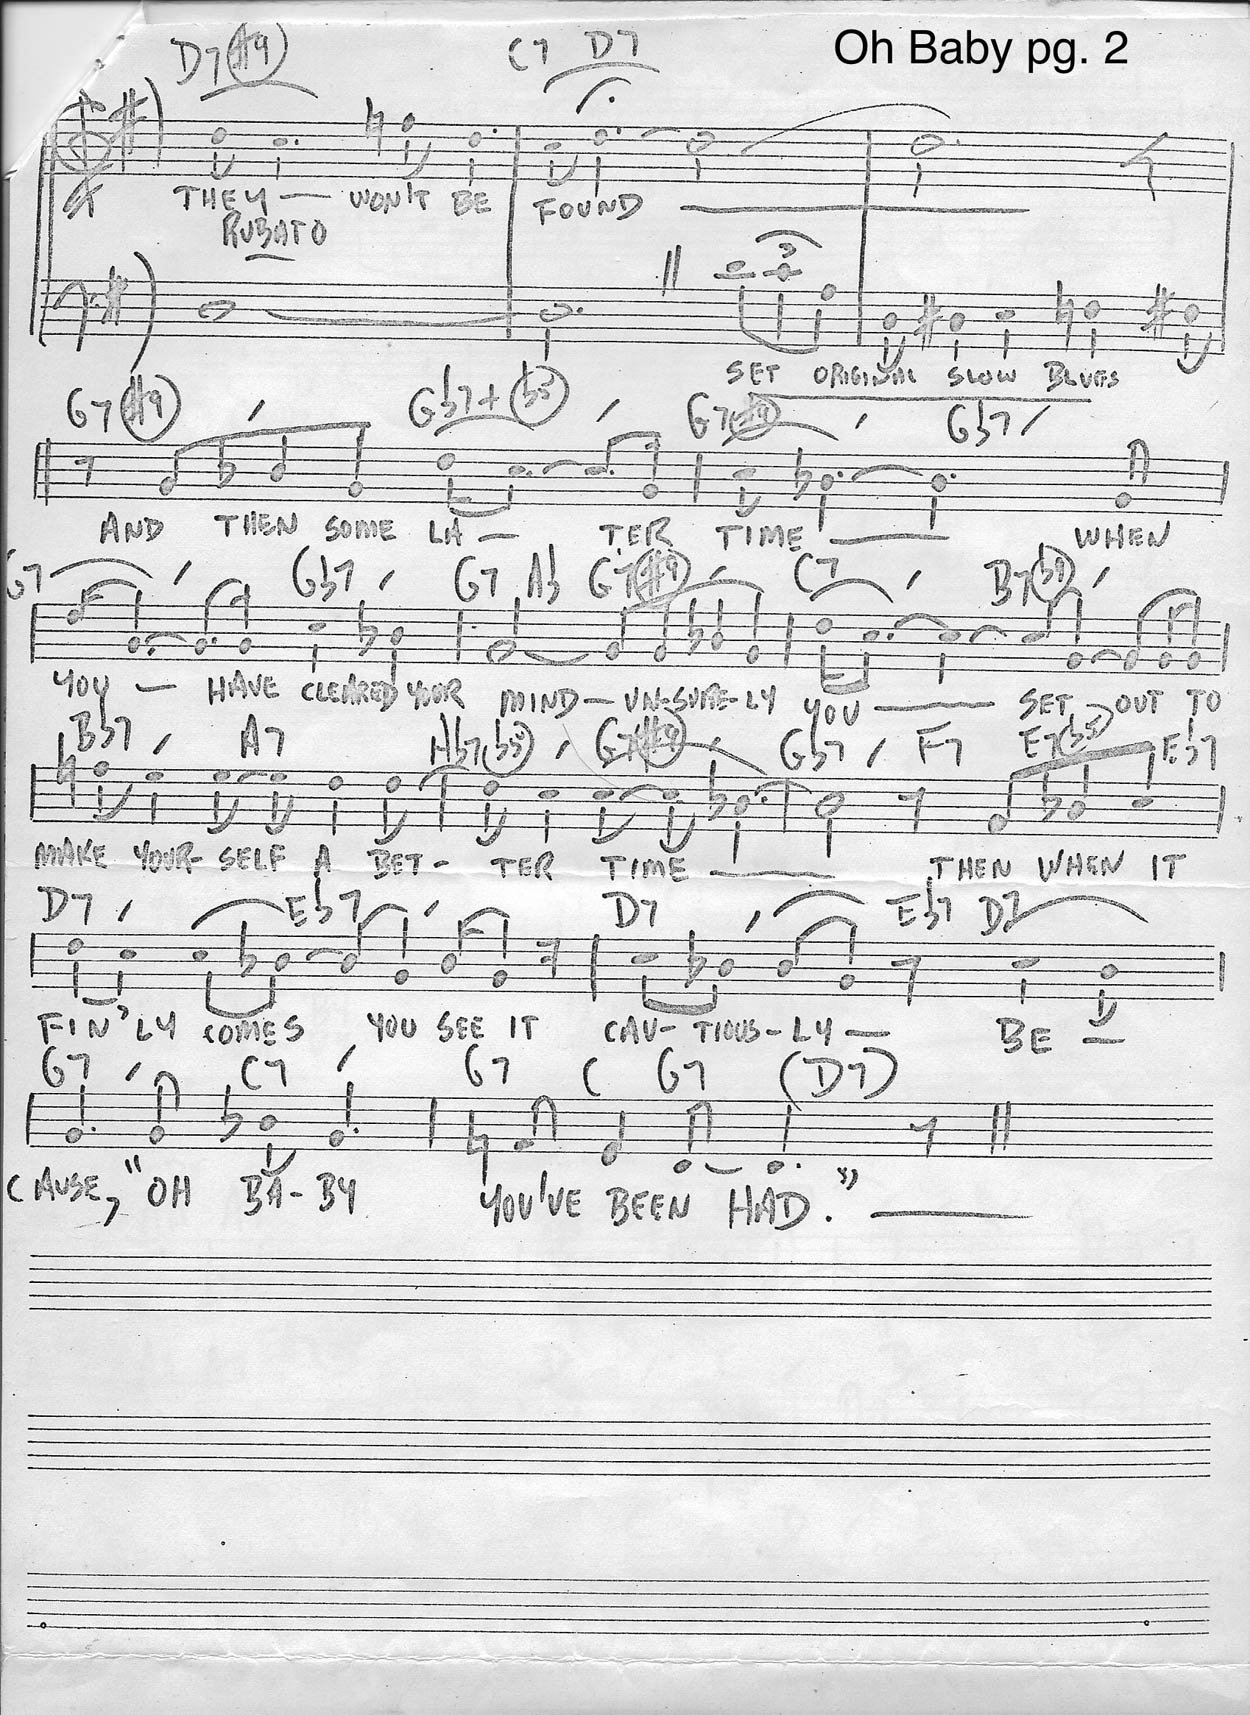 Oh Baby pg. 2
D7(#9) C7 D7
THEY — WON'T BE FOUND
RUBATO
3
SET ORIGINAL SLOW BLUES
G7(#9) / Gb7+(b5) / G7(#9) / Gb7 /
AND THEN SOME LA — TER TIME WHEN
G7 / Gb7 / G7 Ab G7(#9) / C7 / B7(b9) /
YOU — HAVE CLEARED YOUR MIND — UN-SURE-LY YOU SET OUT TO
Bb7 / A7 Ab7(b5) / G7(#9) Gb7 / F7 E7(b5) Eb7
MAKE YOUR-SELF A BET- TER TIME THEN WHEN IT
D7 / Eb7 / D7 / Eb7 D7
FIN'LY COMES YOU SEE IT CAU-TIOUS-LY — BE —
G7 / C7 / G7 C G7 (D7)
CAUSE, "OH BA-BY YOU'VE BEEN HAD."